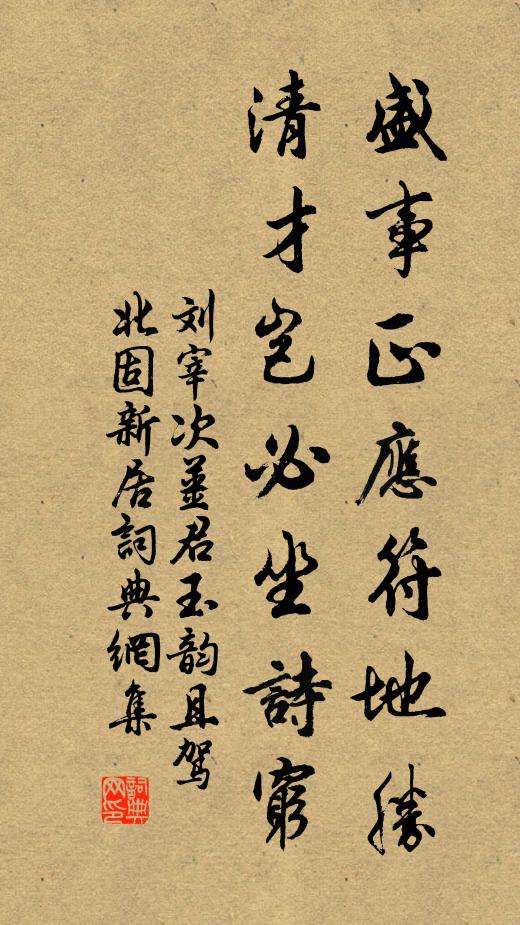 盛事正應符地勝
清才豈必坐詩窮
刘宰次姜君玉韵且驾
北固新居詞典網集
詞典网印